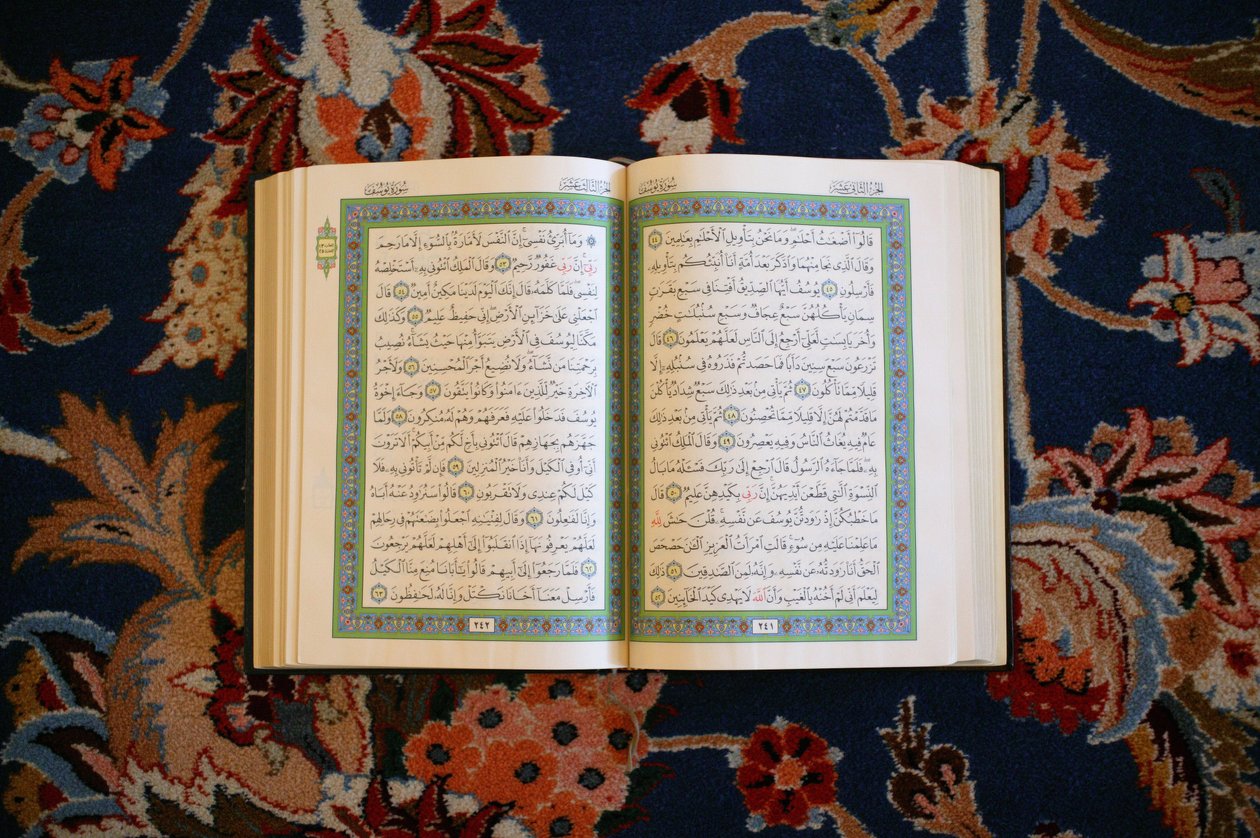 الجُزْءُ الثَّانِي عَشَرَ سُورَةُ يُوسُفَ
قَالُوٓاْ أَضْغَٰثُ أَحْلَٰمٖۖ وَمَا نَحْنُ بِتَأْوِيلِ ٱلْأَحْلَٰمِ بِعَٰلِمِينَ ٤٤
وَقَالَ ٱلَّذِي نَجَا مِنْهُمَا وَٱدَّكَرَ بَعْدَ أُمَّةٍ أَنَا۠ أُنَبِّئُكُم بِتَأْوِيلِهِۦ
فَأَرْسِلُونِ ٤٥ يُوسُفُ أَيُّهَا ٱلصِّدِّيقُ أَفْتِنَا فِي سَبْعِ بَقَرَٰتٖ
سِمَانٖ يَأْكُلُهُنَّ سَبْعٌ عِجَافٞ وَسَبْعِ سُنۢبُلَٰتٍ خُضْرٖ
وَأُخَرَ يَابِسَٰتٖ لَّعَلِّيٓ أَرْجِعُ إِلَى ٱلنَّاسِ لَعَلَّهُمْ يَعْلَمُونَ ٤٦ قَالَ
تَزْرَعُونَ سَبْعَ سِنِينَ دَأَبٗا فَمَا حَصَدتُّمْ فَذَرُوهُ فِي سُنۢبُلِهِۦٓ إِلَّا
قَلِيلٗا مِّمَّا تَأْكُلُونَ ٤٧ ثُمَّ يَأْتِي مِنۢ بَعْدِ ذَٰلِكَ سَبْعٞ شِدَادٞ يَأْكُلْنَ
مَا قَدَّمْتُمْ لَهُنَّ إِلَّا قَلِيلٗا مِّمَّا تُحْصِنُونَ ٤٨ ثُمَّ يَأْتِي مِنۢ بَعْدِ ذَٰلِكَ
عَامٞ فِيهِ يُغَاثُ ٱلنَّاسُ وَفِيهِ يَعْصِرُونَ ٤٩ وَقَالَ ٱلْمَلِكُ ٱئْتُونِي
بِهِۦۖ فَلَمَّا جَآءَهُ ٱلرَّسُولُ قَالَ ٱرْجِعْ إِلَىٰ رَبِّكَ فَسْـَٔلْهُ مَا بَالُ
ٱلنِّسْوَةِ ٱلَّٰتِي قَطَّعْنَ أَيْدِيَهُنَّۚ إِنَّ رَبِّي بِكَيْدِهِنَّ عَلِيمٞ ٥٠ قَالَ
مَا خَطْبُكُنَّ إِذْ رَٰوَدتُّنَّ يُوسُفَ عَن نَّفْسِهِۦۚ قُلْنَ حَٰشَ لِلَّهِ
مَا عَلِمْنَا عَلَيْهِ مِن سُوٓءٖۚ قَالَتِ ٱمْرَأَتُ ٱلْعَزِيزِ ٱلْـَٰٔنَ حَصْحَصَ
ٱلْحَقُّ أَنَا۠ رَٰوَدتُّهُۥ عَن نَّفْسِهِۦ وَإِنَّهُۥ لَمِنَ ٱلصَّٰدِقِينَ ٥١ ذَٰلِكَ
لِيَعْلَمَ أَنِّي لَمْ أَخُنْهُ بِٱلْغَيْبِ وَأَنَّ ٱللَّهَ لَا يَهْدِي كَيْدَ ٱلْخَآئِنِينَ ٥٢
٢٤١
الجُزْءُ الثَّالِثَ عَشَرَ سُورَةُ يُوسُفَ
۞ وَمَآ أُبَرِّئُ نَفْسِيٓۚ إِنَّ ٱلنَّفْسَ لَأَمَّارَةُۢ بِٱلسُّوٓءِ إِلَّا مَا رَحِمَ
رَبِّيٓۚ إِنَّ رَبِّي غَفُورٞ رَّحِيمٞ ٥٣ وَقَالَ ٱلْمَلِكُ ٱئْتُونِي بِهِۦٓ أَسْتَخْلِصْهُ
لِنَفْسِيۖ فَلَمَّا كَلَّمَهُۥ قَالَ إِنَّكَ ٱلْيَوْمَ لَدَيْنَا مَكِينٌ أَمِينٞ ٥٤ قَالَ
ٱجْعَلْنِي عَلَىٰ خَزَآئِنِ ٱلْأَرْضِۖ إِنِّي حَفِيظٌ عَلِيمٞ ٥٥ وَكَذَٰلِكَ
مَكَّنَّا لِيُوسُفَ فِي ٱلْأَرْضِ يَتَبَوَّأُ مِنْهَا حَيْثُ يَشَآءُۚ نُصِيبُ
بِرَحْمَتِنَا مَن نَّشَآءُۖ وَلَا نُضِيعُ أَجْرَ ٱلْمُحْسِنِينَ ٥٦ وَلَأَجْرُ
ٱلْأٓخِرَةِ خَيْرٞ لِّلَّذِينَ ءَامَنُواْ وَكَانُواْ يَتَّقُونَ ٥٧ وَجَآءَ إِخْوَةُ
يُوسُفَ فَدَخَلُواْ عَلَيْهِ فَعَرَفَهُمْ وَهُمْ لَهُۥ مُنكِرُونَ ٥٨ وَلَمَّا
جَهَّزَهُم بِجَهَازِهِمْ قَالَ ٱئْتُونِي بِأَخٖ لَّكُم مِّنْ أَبِيكُمْۚ أَلَا تَرَوْنَ
أَنِّيٓ أُوفِي ٱلْكَيْلَ وَأَنَا۠ خَيْرُ ٱلْمُنزِلِينَ ٥٩ فَإِن لَّمْ تَأْتُونِي بِهِۦ فَلَا
كَيْلَ لَكُمْ عِندِي وَلَا تَقْرَبُونِ ٦٠ قَالُواْ سَنُرَٰوِدُ عَنْهُ أَبَاهُ
وَإِنَّا لَفَٰعِلُونَ ٦١ وَقَالَ لِفِتْيَٰنِهِ ٱجْعَلُواْ بِضَٰعَتَهُمْ فِي رِحَالِهِمْ
لَعَلَّهُمْ يَعْرِفُونَهَآ إِذَا ٱنقَلَبُوٓاْ إِلَىٰٓ أَهْلِهِمْ لَعَلَّهُمْ يَرْجِعُونَ
٦٢ فَلَمَّا رَجَعُوٓاْ إِلَىٰٓ أَبِيهِمْ قَالُواْ يَٰٓأَبَانَا مُنِعَ مِنَّا ٱلْكَيْلُ
فَأَرْسِلْ مَعَنَآ أَخَانَا نَكْتَلْ وَإِنَّا لَهُۥ لَحَٰفِظُونَ ٦٣
٢٤٢